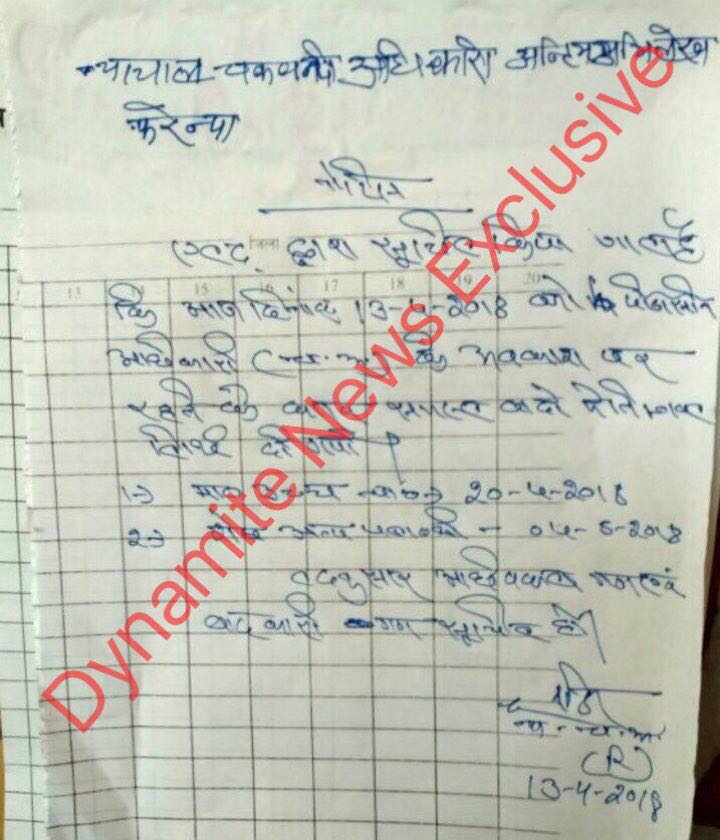 न्यायालय चकबन्दी अधिकारी अन्तिम अभिलेख
फरेन्दा
नोटिस
एतद् द्वारा सूचित किया जाता है
कि आज दिनांक 13-4-2018 को पीठासीन
अधिकारी के अवकाश पर
रहने के कारण समस्त वादों में
तिथि दी गयी
1→ 20-4-2018
2→ 04-5-2018
तदनुसार अधिवक्ता गण एवं
वादकारी गण सूचित हों
(R)
13-4-2018
13 14 15 16 17 18 19 20
Dynamite News Exclusive